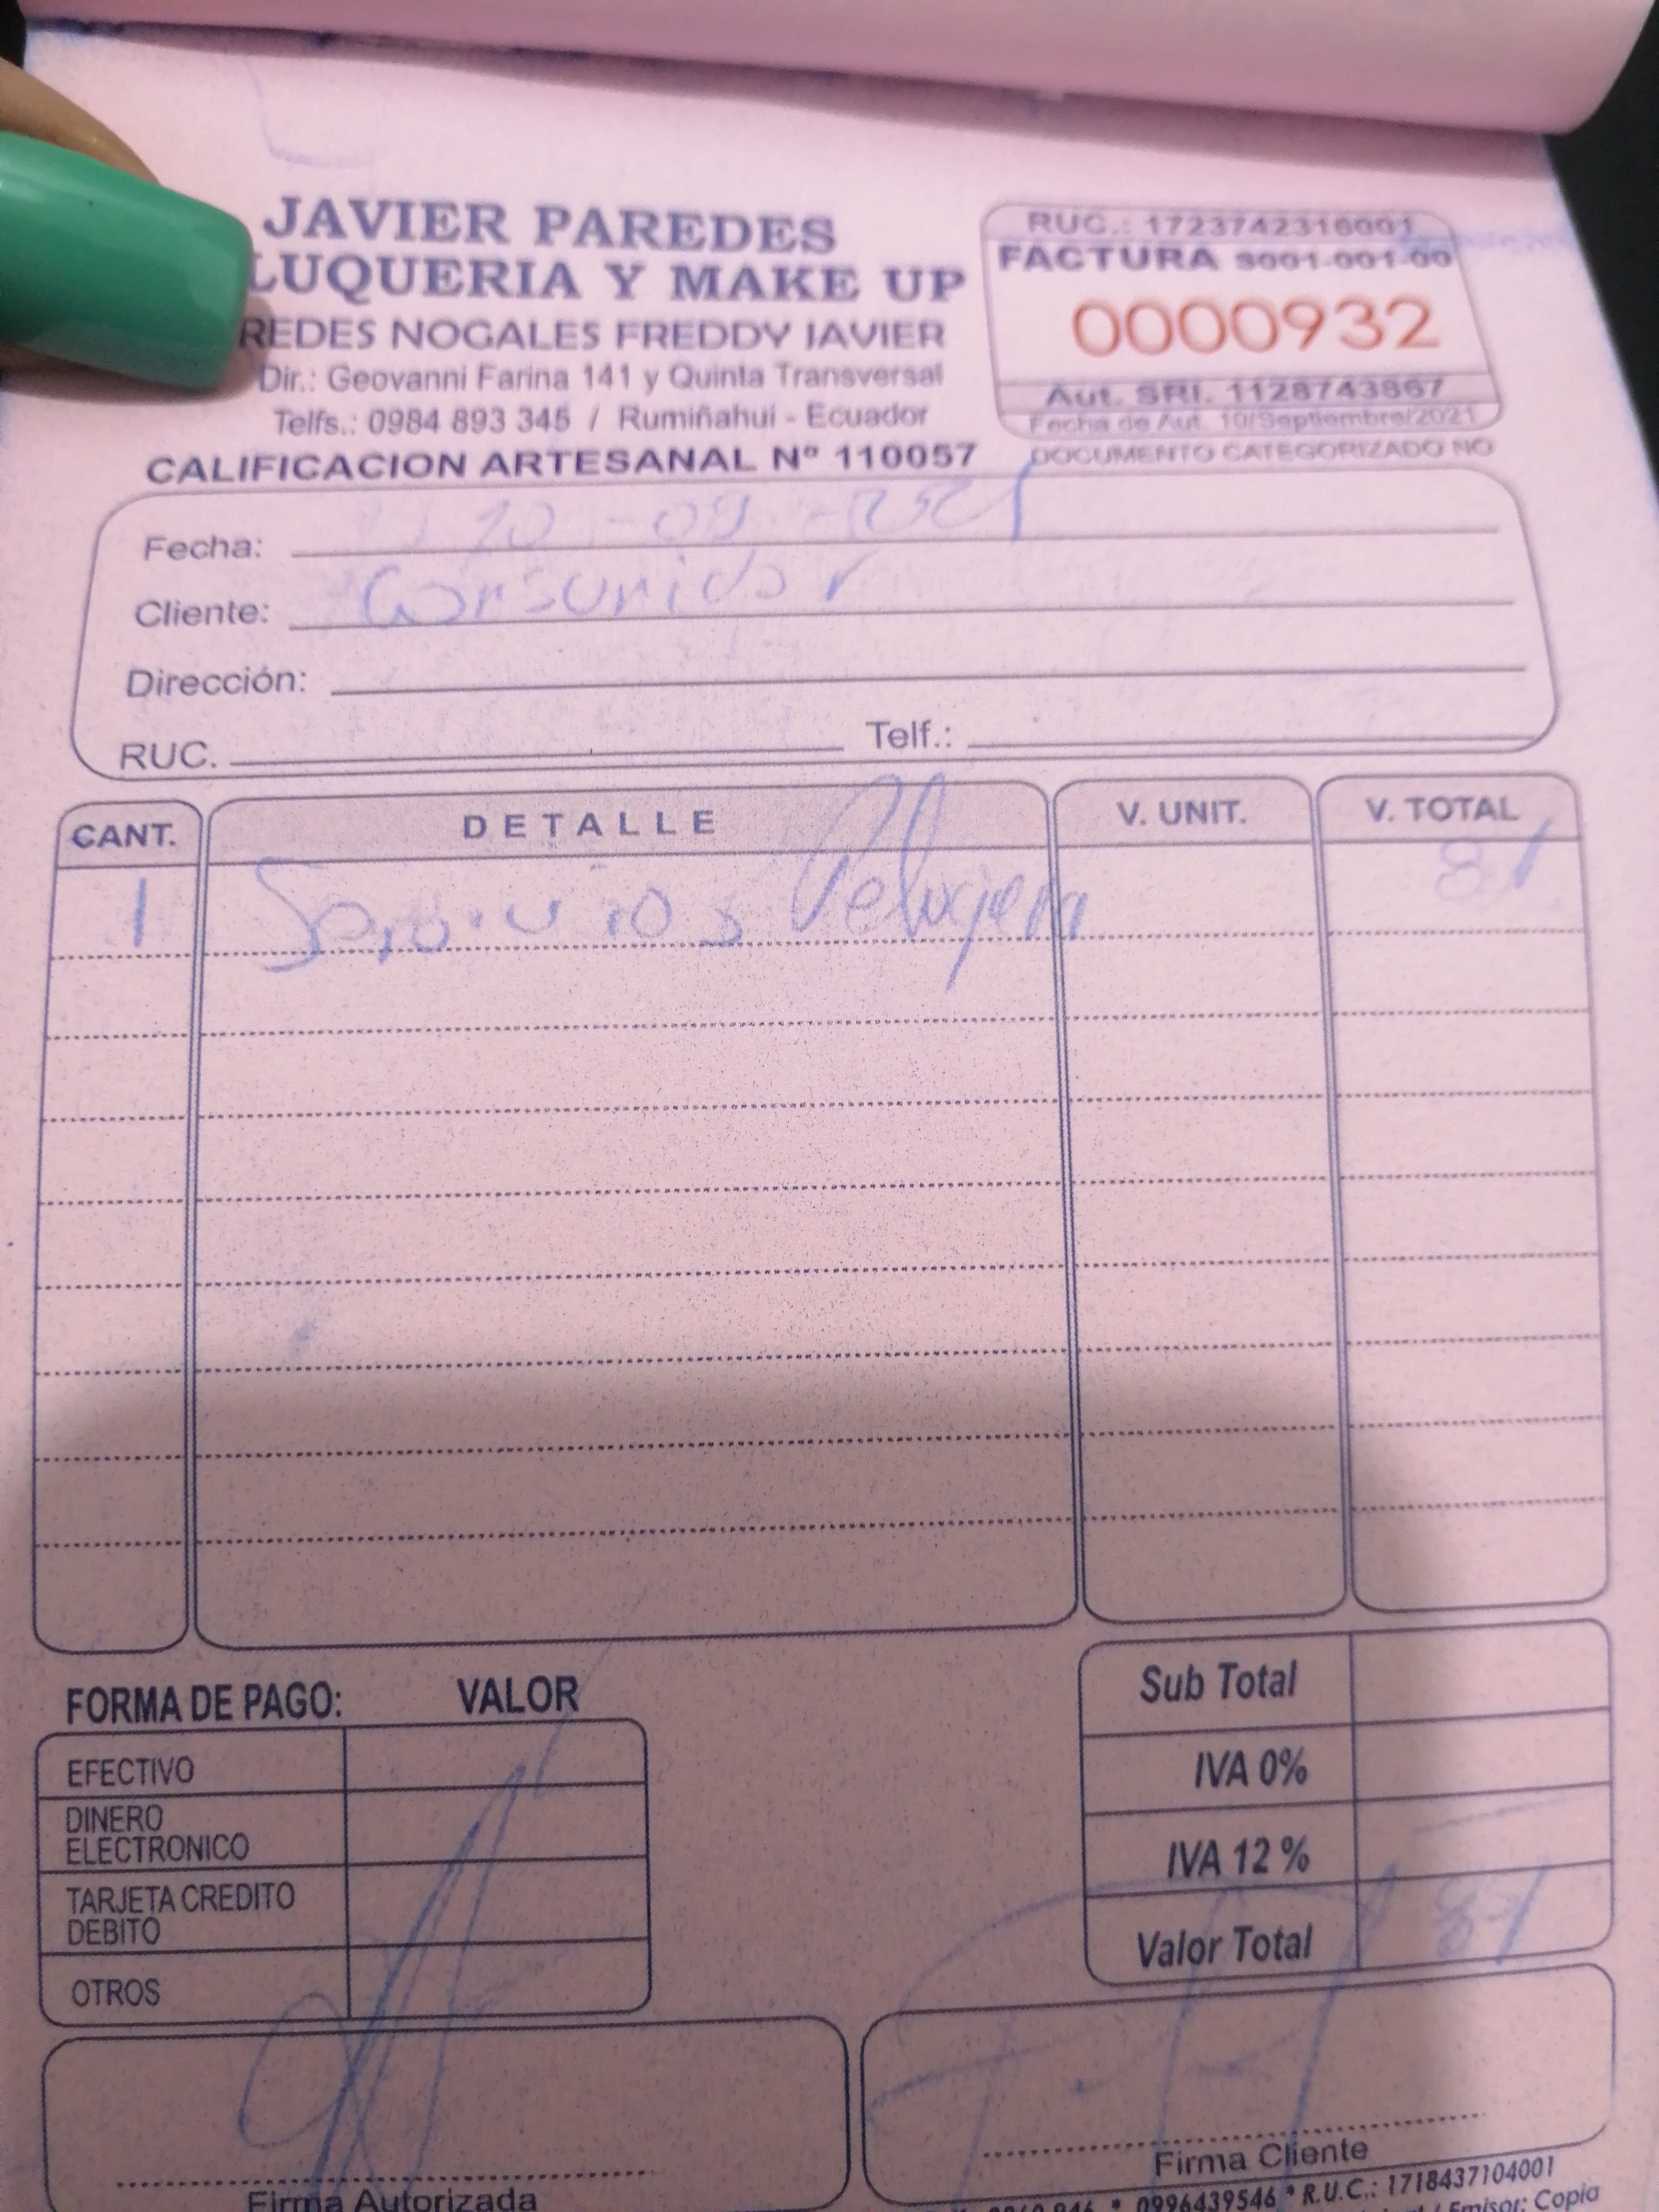 JAVIER PAREDES
LUQUERIA Y MAKE UP
REDES NOGALES FREDDY JAVIER
Dir.: Geovanni Farina 141 y Quinta Transversal
Telfs.: 0984 893 345 / Rumiñahui - Ecuador
CALIFICACION ARTESANAL Nº 110057
RUC.: 1723742316001
FACTURA S001-001-00
0000932
Aut. SRI. 1128743867
Fecha de Aut. 10/Septiembre/2021
DOCUMENTO CATEGORIZADO NO
Fecha: 10-09-2021
Cliente: Consumidor
Dirección:
RUC. Telf.:
CANT. DETALLE V. UNIT. V. TOTAL
1 Servicios Peluqueria 8
FORMA DE PAGO: VALOR
EFECTIVO
DINERO
ELECTRONICO
TARJETA CREDITO
DEBITO
OTROS
Sub Total
IVA 0%
IVA 12 %
Valor Total 8
Firma Autorizada
Firma Cliente
0996439546 * R.U.C.: 1718437104001
/ Emisor: Copia